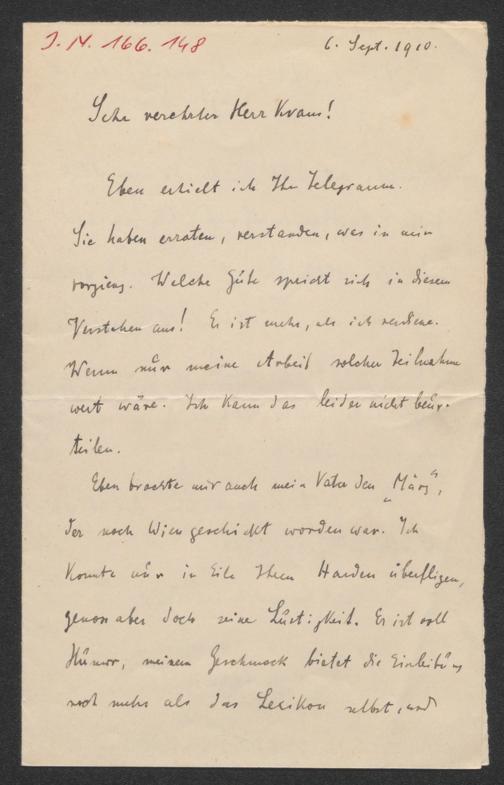 J. N. 166.148
6. Sept. 1910.
Sehr verehrter Herr Kraus!
Eben erhielt ich Ihr Telegramm.
Sie haben erraten, verstanden, was in mir
vorgieng. Welche Güte spricht sich in diesem
Verstehen aus! Es ist mehr, als ich verdiene.
Wenn nur meine Arbeit solcher Teilnahme
wert wäre. Ich kann das leider nicht beur-
teilen.
Eben brachte mir auch mein Vater den „März“,
der nach Wien geschickt worden war. Ich
konnte nur in Eile Ihren Harden überfliegen,
genoss aber doch seine Lustigkeit. Er ist voll
Humor, meinem Geschmack bietet die Einleitung
noch mehr als das Lexikon selbst, und